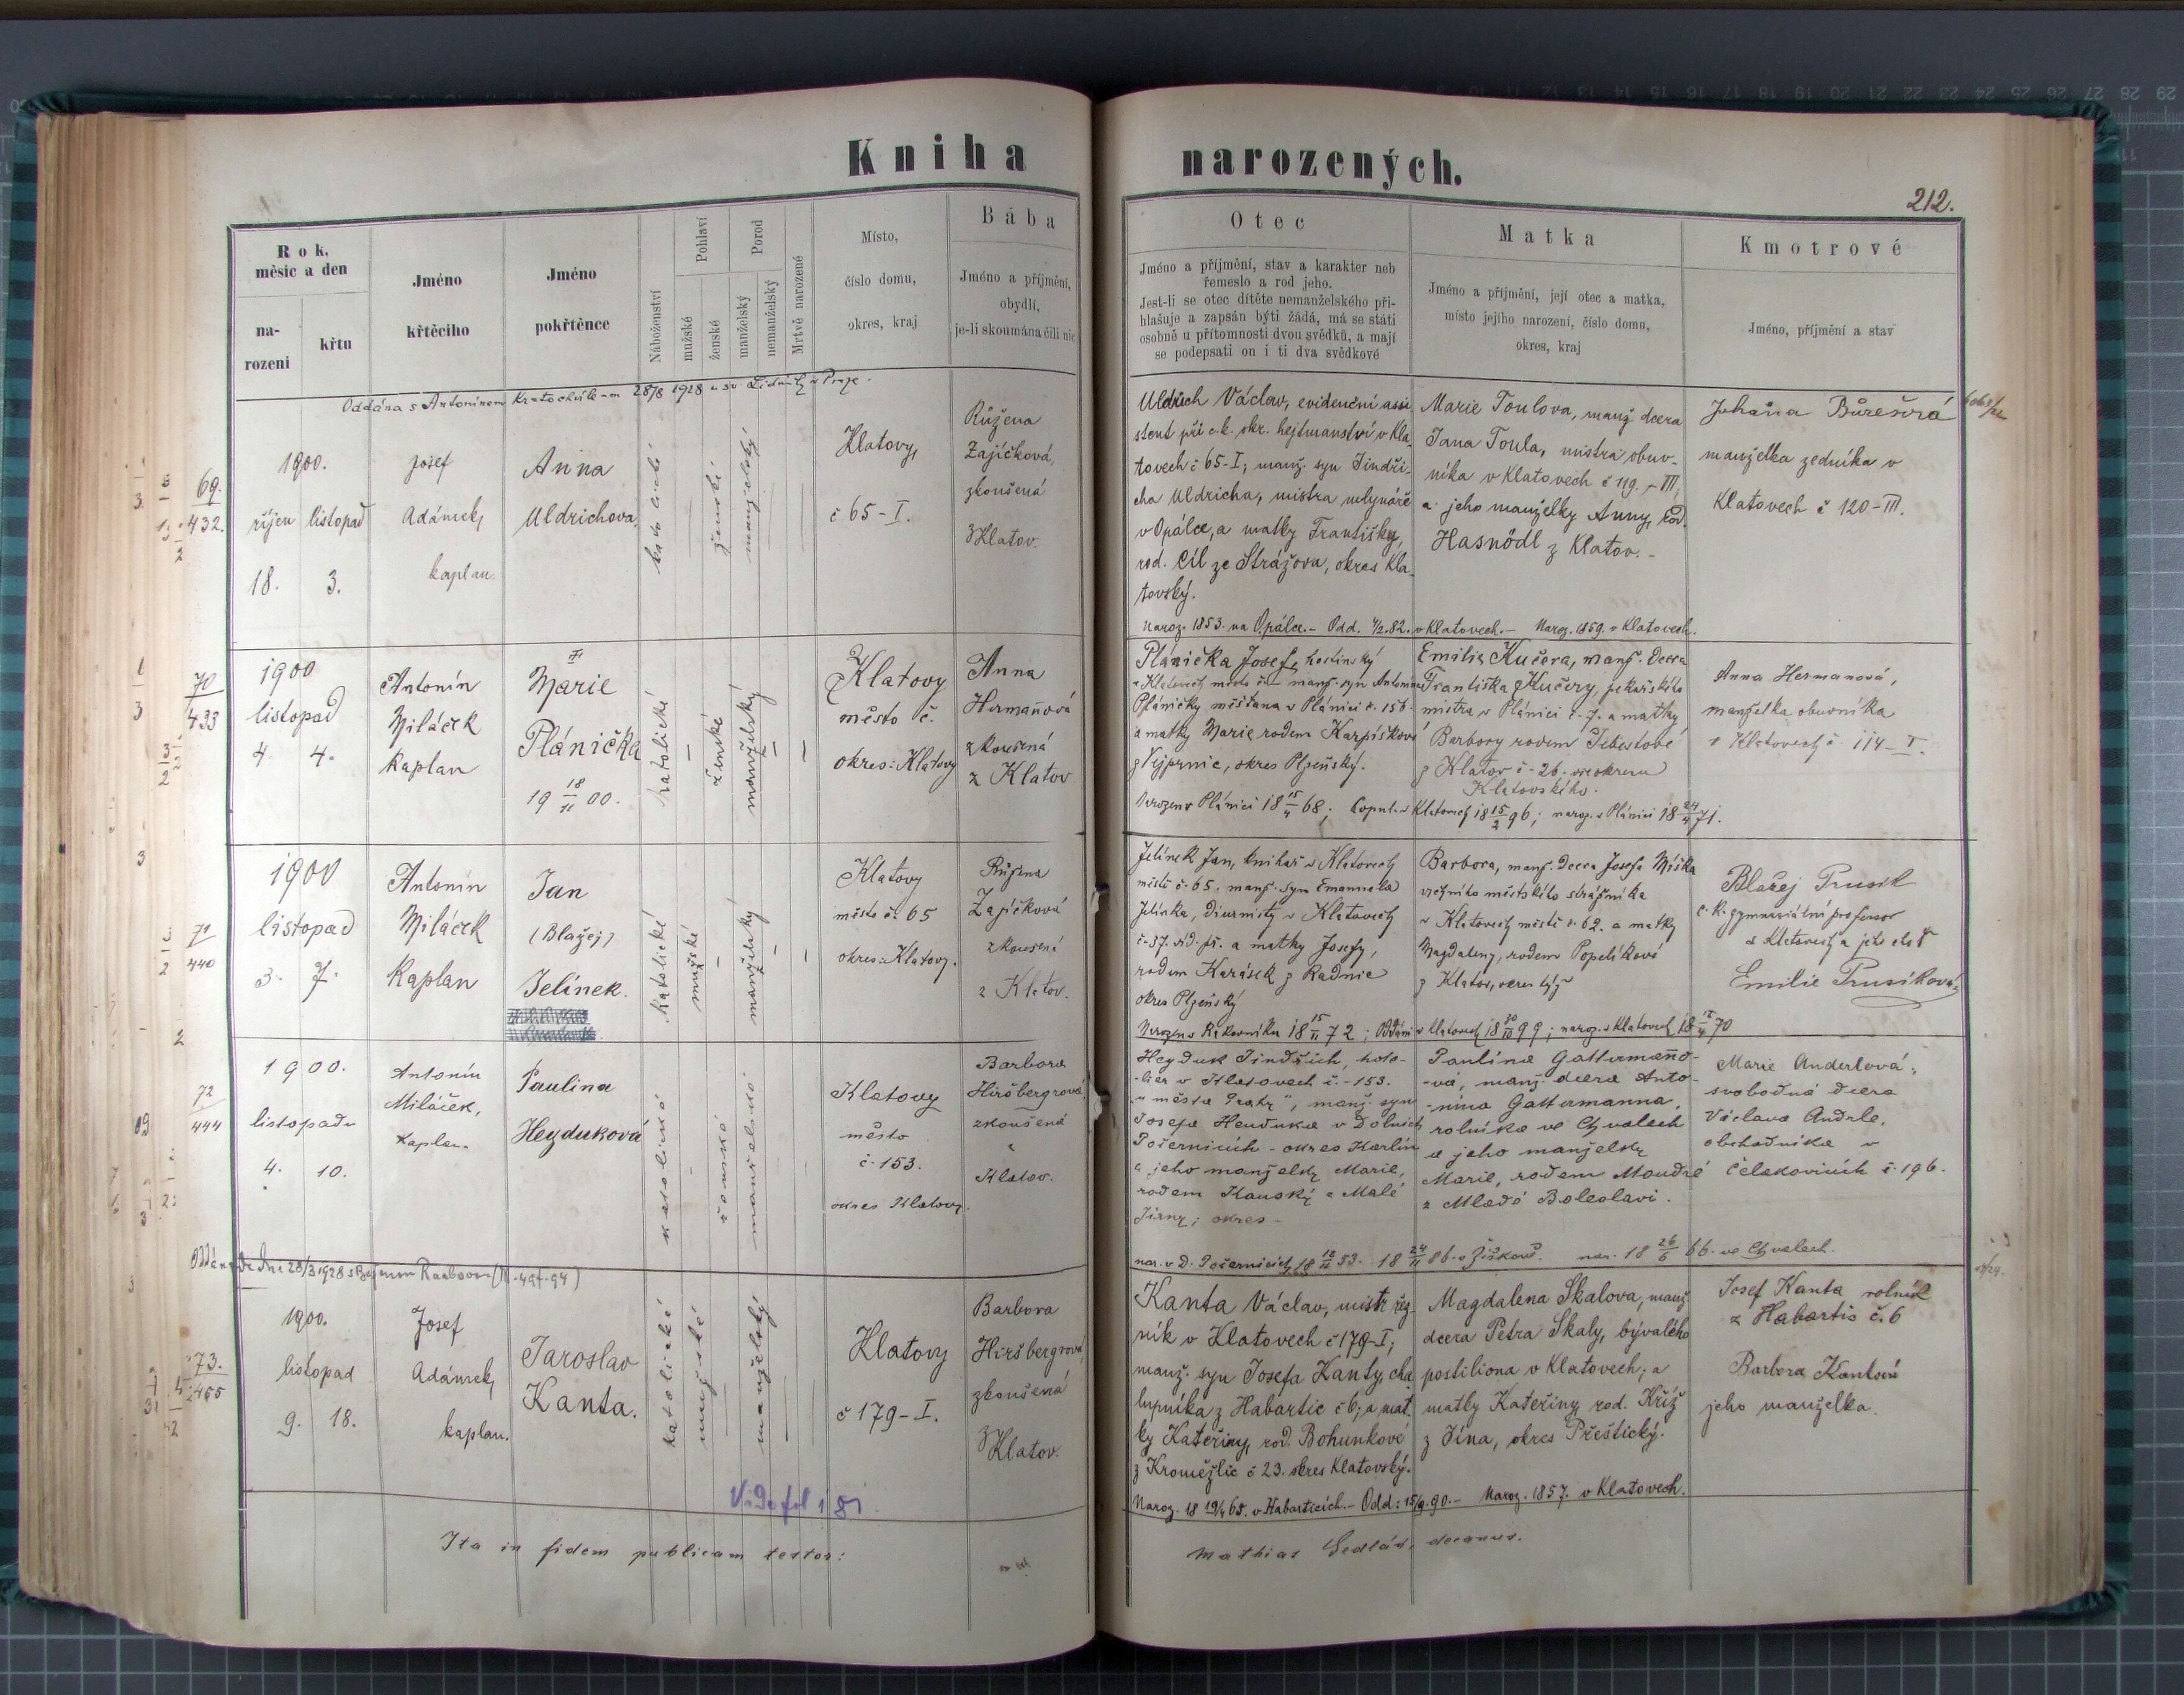 Kniha narozených.
212.
Rok, měsíc a den
na-
rození
křtu
Jméno
křtěcího
Jméno
pokřtěnce
Náboženství
Pohlaví
mužské
ženské
Porod
manželský
nemanželský
Mrtvě narozené
Místo,
číslo domu,
okres, kraj
Bába
Jméno a příjmění,
obydlí,
je-li skoumána čili nic
Otec
Jméno a příjmění, stav a karakter neb
řemeslo a rod jeho.
Jest-li se otec dítěte nemanželského při-
hlašuje a zapsán býti žádá, má se státi
osobně u přítomnosti dvou svědků, a mají
se podepsati on i ti dva svědkové
Matka
Jméno a příjmění, její otec a matka,
místo jejího narození, číslo domu,
okres, kraj
Kmotrové
Jméno, příjmění a stav
Oddána s Antonínem Kratochvílem 28/8 1928 u sv. Ludmily v Praze.
69.
432.
1900.
říjen listopad
18. 3.
Josef
Adámek,
kaplan.
Anna
Uldrichova.
katolické
ženské
manželský
Klatovy,
č 65-I.
Růžena
Zajíčková,
zkoušená
z Klatov.
Uldrich Václav, evidenční assi-
stent při c.k. okr. hejtmanství v Kla-
tovech č 65-I; manž. syn Jindři-
cha Uldricha, mistra mlynáře
v Opálce, a matky Františky,
rod. Cíl ze Strážova, okres Kla-
tovský.
Marie Toulova, manž dcera
Jana Toula, mistra obuv-
níka v Klatovech č 119.-III,
a jeho manželky Anny, rod.
Hasnödl z Klatov.-
Johana Burešová
manželka zedníka v
Klatovech č 120-III.
naroz. 1853. na Opálce.- Odd. 4/2.82. v Klatovech.- Naroz. 1859. v Klatovech.
70
433
1900
listopad
4. 4.
Antonín
Miláček
kaplan
Marie
Plánička
19 18/11 00.
katolické
ženské
manželský
Klatovy
město č.
okres: Klatovy
Anna
Heřmanová
zkoušená
z Klatov
Plánička Josef, hostinský
v Klatovech město č. manž. syn Antonína
Pláničky měšťana v Plánici č. 156
a matky Marie rodem Karpíškové
z Vejprnic, okres Plzeňský.
Emilie Kučera, manž. dcera
Františka Kučery, pekařského
mistra v Plánici č. 7. a matky
Barbory rodem Šebestové
z Klatov č. 26. vše okresu
Klatovského.
Anna Hermanová,
manželka obuvníka
v Klatovech č. 114-I.
Narozen v Plánici 18 15/4 68; Copul. v Klatovech 18 15/2 96; naroz. v Plánici 18 24/4 71.
71
440
1900
listopad
3. 7.
Antonín
Miláček
Kaplan
Jan
(Blažej)
Jelínek.
katolické
mužské
manželský
Klatovy
město č. 65
okres: Klatovy.
Růžena
Zajíčková
zkoušená
z Klatov.
Jelínek Jan, knihař v Klatovech
městě č. 65. manž. syn Emanuela
Jelínka, diurnisty v Klatovech
a matky Josefy,
rodem Karásek z Radnic
okres Plzeňský
Barbora, manž. dcera Josefa Míška
městského strážníka
v Klatovech městě č. 62. a matky
Magdaleny, rodem Popelíkové
z Klatov, okres týž
Blažej Prusík
c. k. gymnasiální profesor
v Klatovech a jeho choť
Emilie Prusíková
Narozen v Rakovníku 18 15/11 72; Oddáni v Klatovech 18 30/10 99; naroz. v Klatovech 18 12/4 70
72
444
1900.
listopadu
4. 10.
Antonín
Miláček,
kaplan.
Paulina
Heyduková
katolické
ženské
manželské
Klatovy
město
č. 153.
okres Klatovy.
Barbora
Hiršbergrová,
zkoušená
z
Klatov.
Heyduk Jindřich, hote-
-liér v Klatovech č.-153.
„u města Prahy", manž. syn
Josefa Heyduka v Dolních
Počernicích - okres Karlín
a jeho manželky Marie,
rodem Kauský z Malé
Jirny; okres -
Paulina Gattermanno-
-vá, manž. dcera Anto-
-nína Gattermanna,
rolníka ve Chvalech
a jeho manželky
Marie, rodem Moudré
z Mladé Boleslavi.
Marie Anderlová,
svobodná dcera
Václava Anderle,
obchodníka v
Čelakovicích č. 196.
nar. v D. Počernicích 18 12/11 53. 18 24/11 86. v Žižkově. nar. 18 26/6 66. ve Chvalech.
73.
455
1900.
listopad
9. 18.
Josef
Adámek,
kaplan.
Jaroslav
Kanta.
katolické
mužské
manželský
Klatovy
č 179-I.
Barbora
Hiršbergrová,
zkoušená
z Klatov.
Kanta Václav, mistr řez-
ník v Klatovech č 179-I;
manž. syn Josefa Kanty, cha-
lupníka z Habartic č 6; a mat-
ky Kateřiny, rod. Bohunkové
z Kroměždic č 23. okres Klatovský.
Magdalena Skalova, manž.
dcera Petra Skaly, bývalého
postiliona v Klatovech; a
matky Kateřiny rod. Kříž
z Jína, okres Přeštický.
Josef Kanta rolník
z Habartic č. 6
Barbora Kantová
jeho manželka.
Naroz. 18 19/4 65. v Habarticích.- Odd: 15/9.90.- Naroz. 1857. v Klatovech.
Vide fol 181.
Ita in fidem publicam testor:
Mathias Sedlák, decanus.